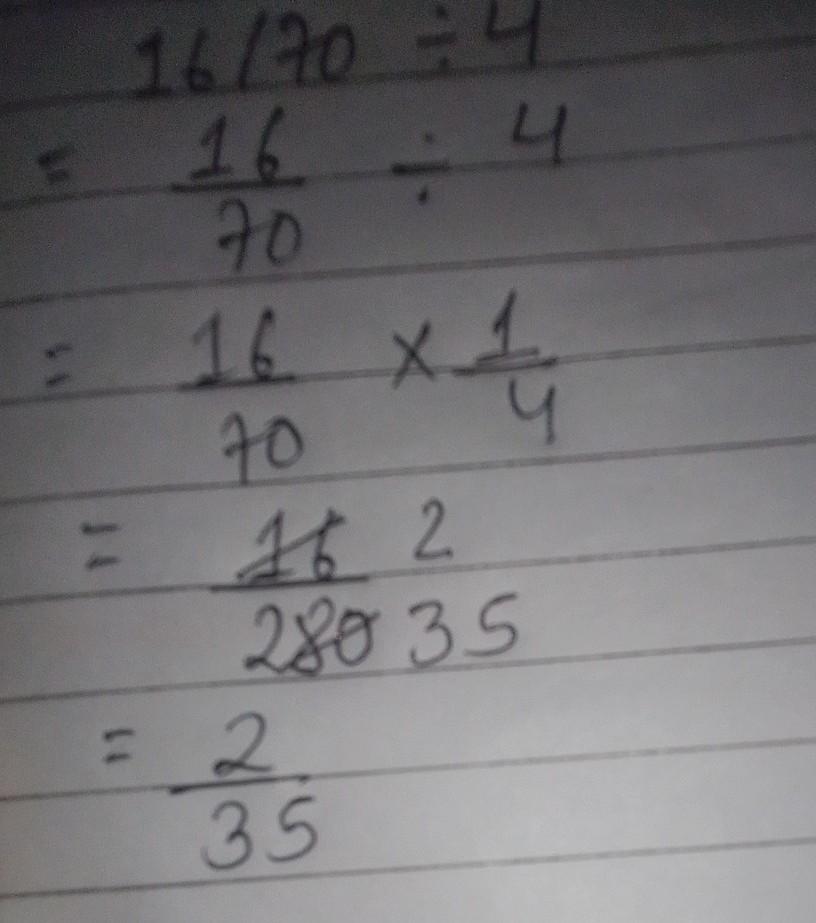 16/70 ÷ 4
= 16/70 ÷ 4
= 16/70 × 1/4
= 16/280 2/35
= 2/35